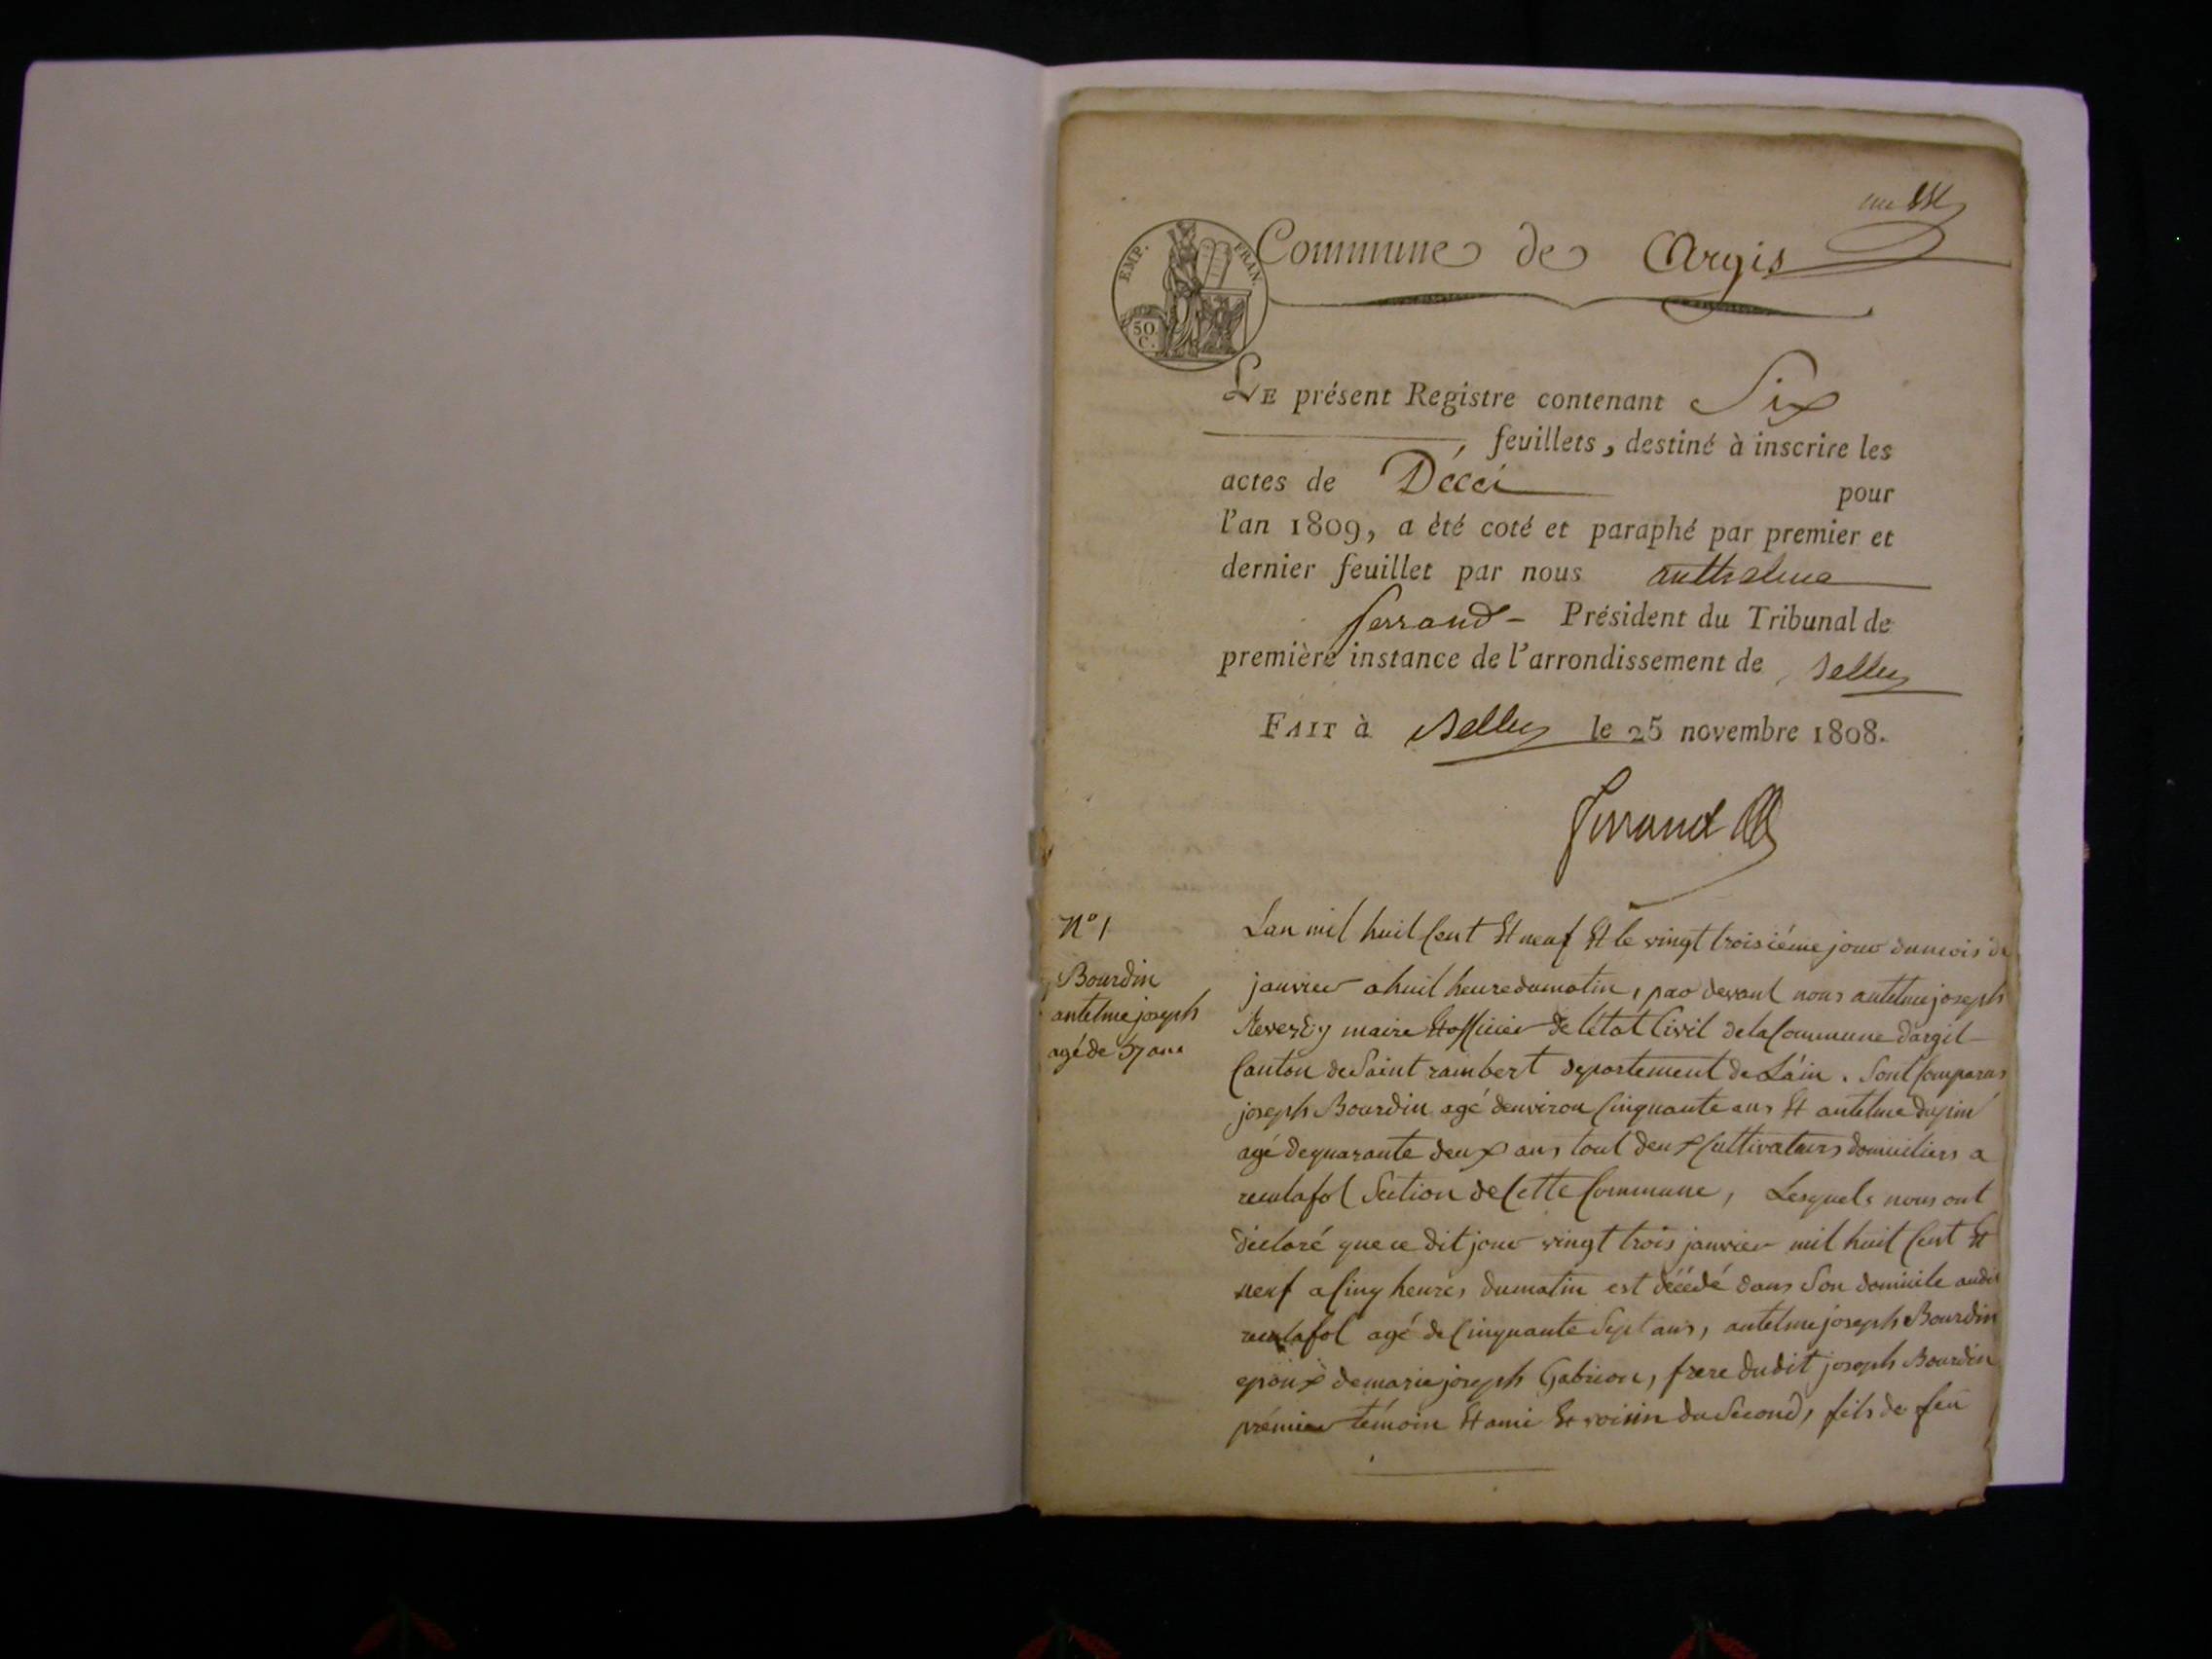 Commune de Argis
EMP. FRAN.
50
C.
LE présent Registre contenant Six
feuillets, destiné à inscrire les
actes de Décès pour
l'an 1809, a èté coté et paraphé par premier et
dernier feuillet par nous anthelme
ferrand - Président du Tribunal de
première instance de l'arrondissement de Belley
FAIT à Belley le 25 novembre 1808.
ferrand
N° 1
Bourdin
antelme joseph
agé de 57 ans
Lan mil huit Cent Et neuf Et le vingt troisiéme jour du mois de
janvier a huit heure du matin, par devant nous antelme joseph
Reverdy maire Et officier de létat Civil de la Commune dargit
Canton de Saint rambert departement de Láin. Sont Comparus
joseph Bourdin agé denviron Cinquante ans Et antelme dupin
agé de quarante deux ans tout deux Cultivateurs domiciliers a
reculafol Section de Cette Commune, Lesquels nous ont
déclaré que ce dit jour vingt trois janvier mil huit Cent Et
neuf a Cinq heures du matin est décédé dans Son domicile audit
reculafol agé de Cinquante Sept ans, antelme joseph Bourdin
epoux de marie joseph Gabrion, frere dudit joseph Bourdin
prémier témoin Et ami Et voisin du Second, fils de feu